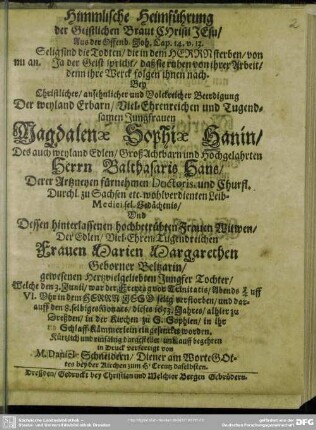 2
Himmlische Heimführung
der Geistlichen Braut Christi JEsu/
Aus der Offenb. Joh. Cap. 14. v. 13.
Selig sind die Todten/ die in dem HERRN sterben/ von
nu an. Ja der Geist spricht/ daß sie ruhen von ihrer Arbeit/
denn ihre Werck folgen ihnen nach.
Bey
Christlicher/ ansehnlicher und Volckreicher Beerdigung
Der weyland Erbarn/ Viel-Ehrenreichen und Tugend-
samen Jungfrauen
Magdalenæ Sophiæ Hanin/
Des auch weyland Edlen/ GroßAchtbarn und Hochgelahrten
Herrn Balthasaris Hans/
Derer Artzneyen fürnehmen Doctoris, und Churfl.
Durchl. zu Sachsen etc. wohlverdienten Leib-
Medici sel. Gedächtnis/
Und
Dessen hinterlassenen hochbetrübten Frauen Witwen/
Der Edlen/ Viel-Ehren-Tugendreichen
Frauen Marien Margarethen
Geborner
gewesenen Hertzvielgeliebten Jungfer Tochter/
Welche den 3. Junii, war der Freytag vor Trinitatis, Abends
VI. Uhr in dem HERRN JESU selig verstorben/ und dar-
auff den 8. selbiges Monats/ dieses 1653. Jahres/ allhier zu
Dreßden/ in der Kirchen zu S. Sophien/ in ihr
Schlaff-Kämmerlein eingesencket worden.
Kürtzlich und einfältig dargestellet/ im Lauff begehren
in Druck verfertiget von
M. Daniel Schneidern/ Diener am Worte GOt-
tes bey der Kirchen zum H. Creutz daselbsten.
Dreßden/ Gedruckt bey Christian und Melchior Bergen Gebrüdern.